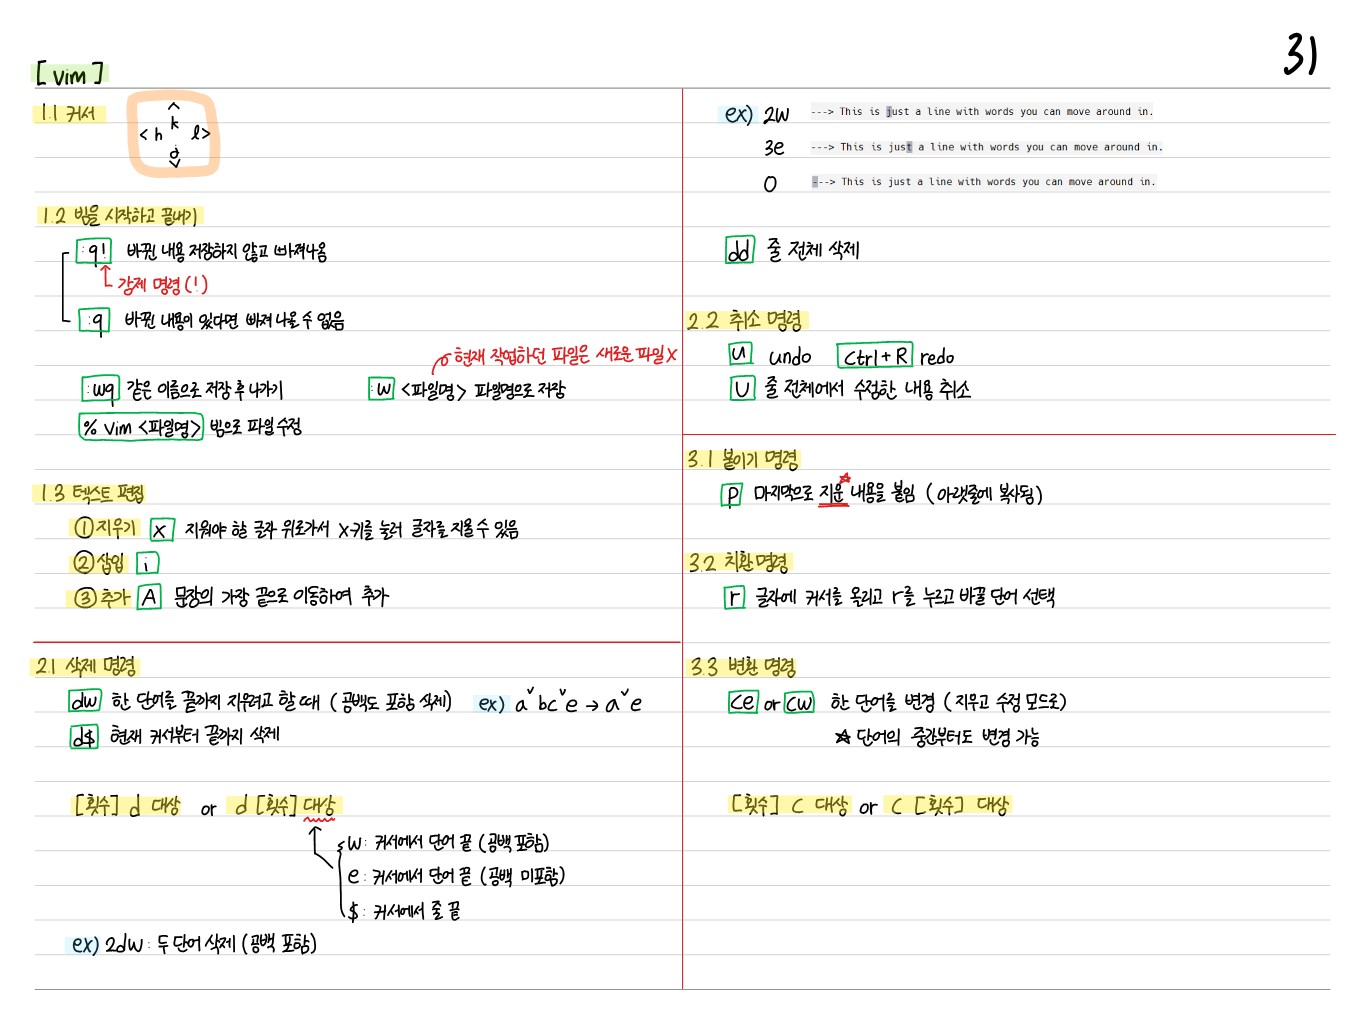 31
[vim]
1.1 커서
^
k
< h l >
j
v
1.2 빔을 시작하고 끝내기
:q! 바뀐 내용 저장하지 않고 빠져나옴
강제 명령(!)
:q 바뀐 내용이 있다면 빠져 나올 수 없음
현재 작업하던 파일은 새로운 파일 X
:wq 같은 이름으로 저장 후 나가기 :w <파일명> 파일명으로 저장
% vim <파일명> 빔으로 파일 수정
1.3 텍스트 편집
① 지우기 x 지워야 할 글자 위로가서 x키를 눌러 글자를 지울 수 있음
② 삽입 i
③ 추가 A 문장의 가장 끝으로 이동하여 추가
2.1 삭제 명령
dw 한 단어를 끝까지 지우려고 할 때 (공백도 포함 삭제) ex) a˅bc˅e → a˅e
d$ 현재 커서부터 끝까지 삭제
[횟수] d 대상 or d [횟수] 대상
w: 커서에서 단어 끝 (공백 포함)
e: 커서에서 단어 끝 (공백 미포함)
$: 커서에서 줄 끝
ex) 2dw: 두 단어 삭제 (공백 포함)
ex) 2w ---> This is just a line with words you can move around in.
3e ---> This is just a line with words you can move around in.
0 ---> This is just a line with words you can move around in.
dd 줄 전체 삭제
2.2 취소 명령
u undo Ctrl+R redo
U 줄 전체에서 수정한 내용 취소
3.1 붙이기 명령
p 마지막으로 지운☆ 내용을 붙임 (아랫줄에 복사됨)
3.2 치환 명령
r 글자에 커서를 올리고 r를 누르고 바꿀 단어 선택
3.3 변환 명령
ce or cw 한 단어를 변경 (지우고 수정 모드로)
☆ 단어의 중간부터도 변경 가능
[횟수] c 대상 or c [횟수] 대상